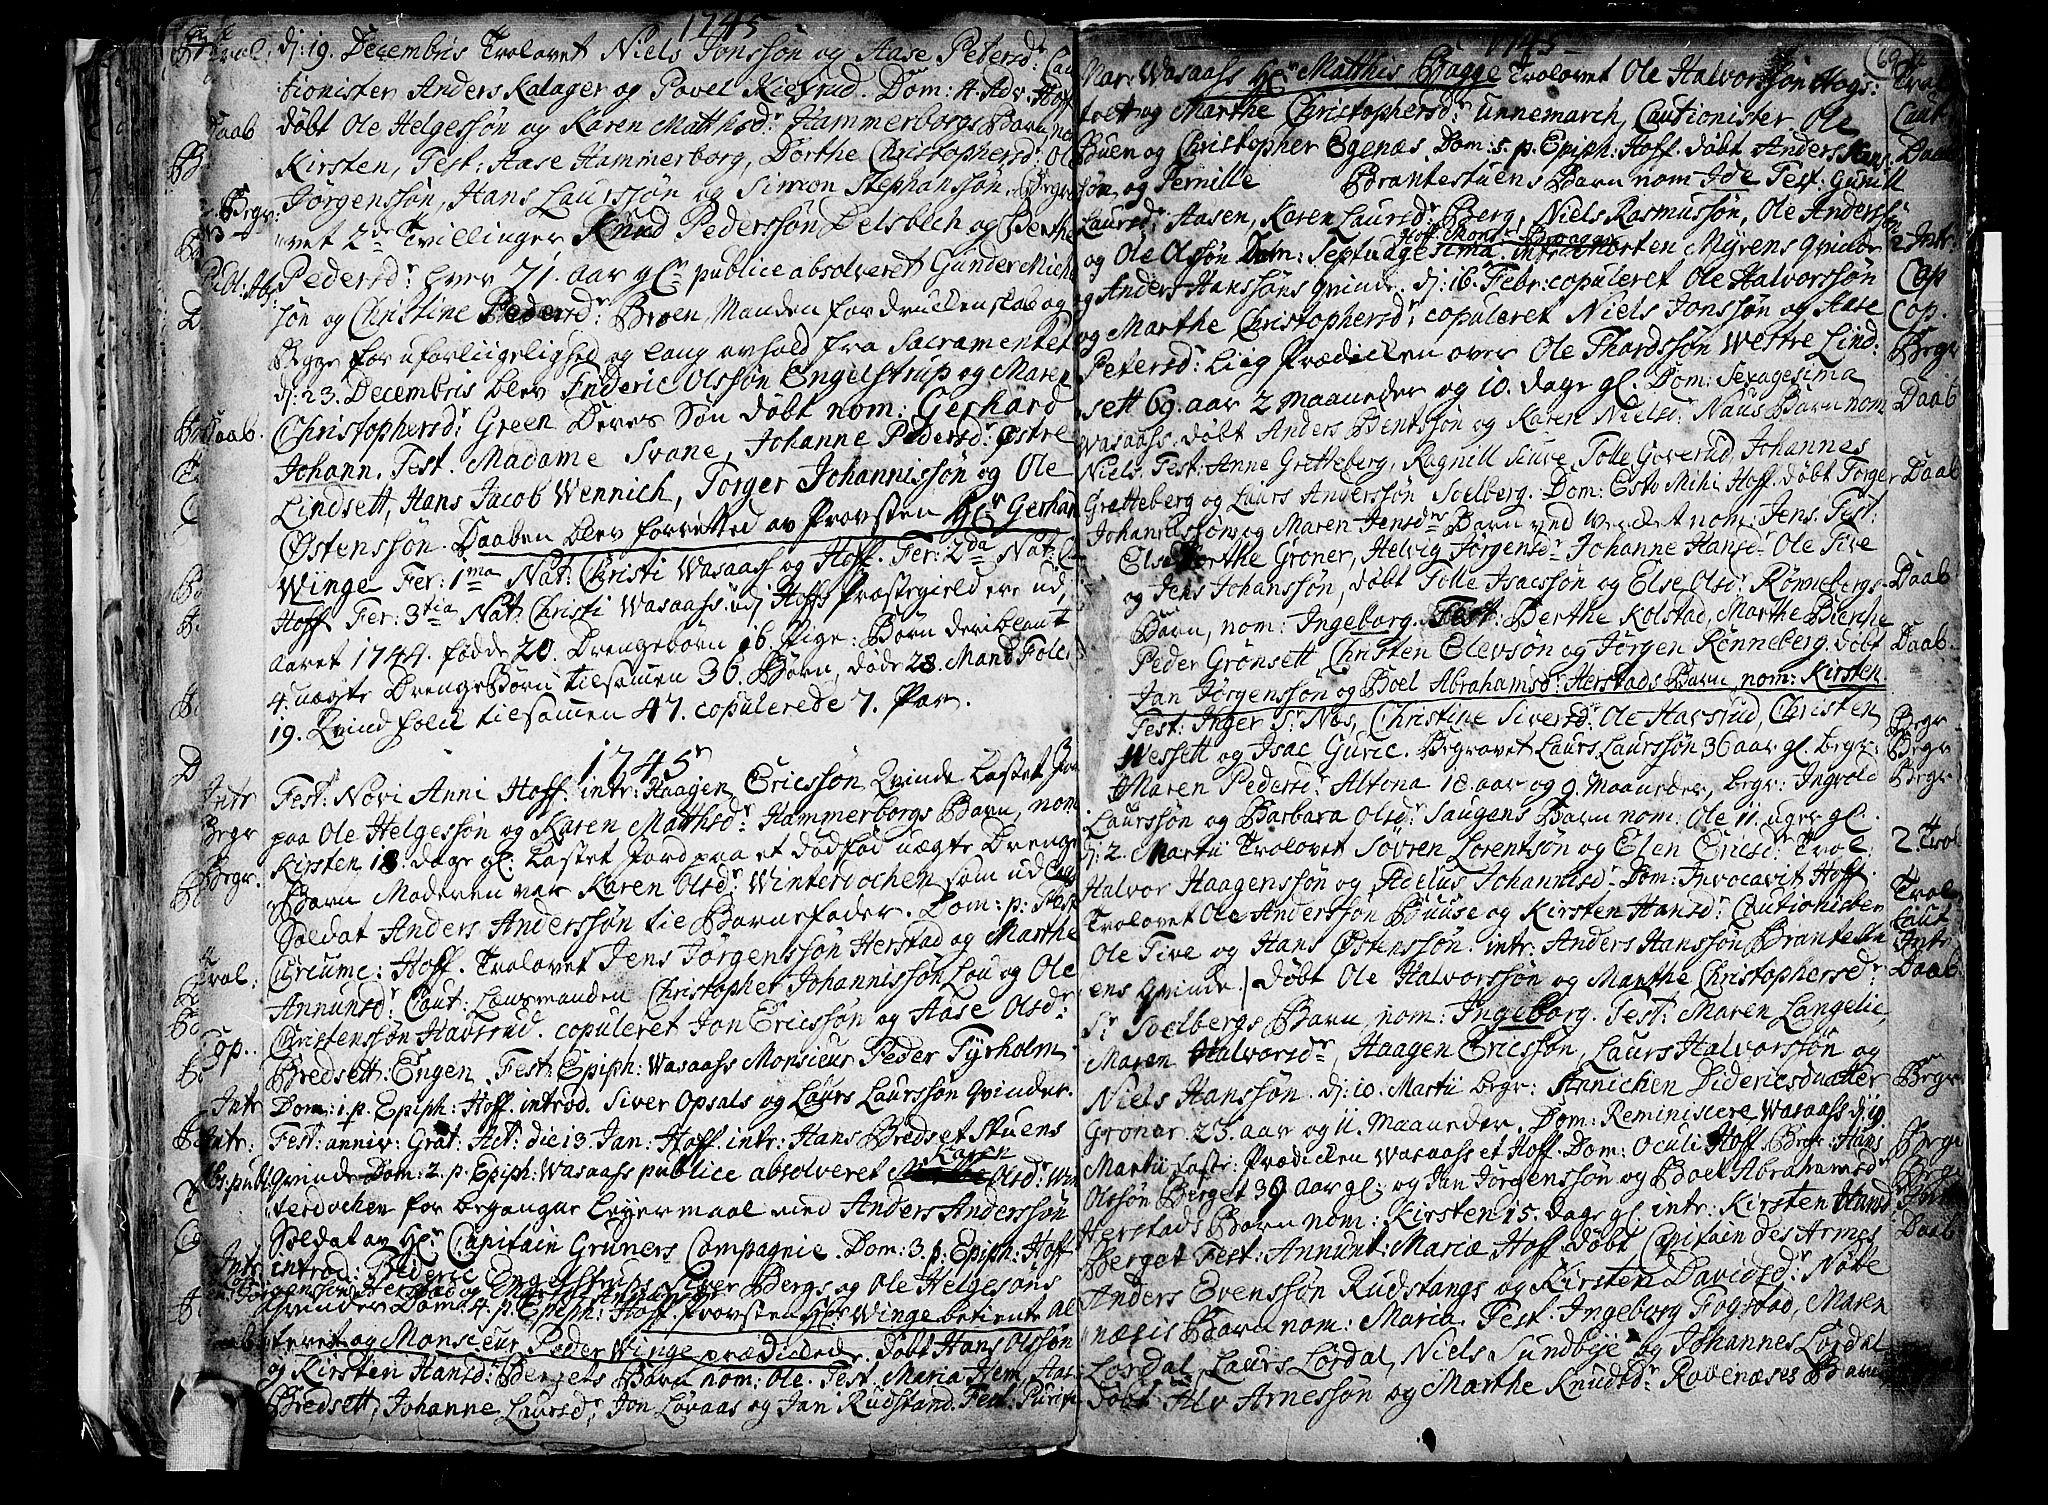 1745
dj: 19. Decembris Trolovet Niels Jonssøn og Aase Petersdr: Cau
tionister Anders Kalager og Povel Kiefrud. Dom: 4. Adv: Hoff
døbt Ole Helgessøn og Karen Matthsdr: Hammerborgs Barn no
Kirsten, Test: Aase Hammerborg, Dorthe Christophersdr: Ole
Jørgenssøn, Hans Laurssøn og Simon Stephanssøn. Begra
vet 2de Tvillinger Knud Pederssøn Delsbech og Berthe
Pedersdr hver 71. aar gl: publice absolveret Gunder Mich
søn og Christine Pedersdr: Broen, Manden for druckenskab og
Begge for uforliigelighed og lang ophold fra Sacramentet
dj: 23. Decembris blev Frideric Olssøn Engelstrup og Maren
Christophersdr Green Deres Søn døbt nom: Gerhard
Johann. Test. Madame Svane, Johanne Pedersdr: østre
Lindsett, Hans Jacob Wennich, Torger Johannissøn og Ole
Østenssøn. Daaben blev forretted av Provsten Hr: Gerhar
Winge Fer: 1ma Nat: Christi Wasaass og Hoff. Fer: 2da Nat: C
Hoff Fer: 3tia Nat: Christi Wasaass: udj Hoffs Præstegield ere ud,
aaret 1744. fødde 20. Drengebørn 16 Pige: Børn deriblant
4. uægte DrengeBørn tilsamen 36. Børn, døde 28. MandFolk
19. Qvindfolck tilsamen 47. copulerede 7. Par.
1745
Fest: Novi Anni Hoff. intr: Haagen Ericssøn Qvinde Castet Jor
paa Ole Helgessøn og Karen Matthsdr: Hammerborgs Barn, nom
Kirsten 18. dage gl: Castet Jord paa et dødfød uægte Drenge
Barn Moderen var Karen Olsdr: Winterdochen som ud
Soldat Anders Anderssøn til Barnefader. Dom: p: Fest
Circumc: Hoff. Trolovet Jens Jørgenssøn Herstad og Marthe
Annunsdr: Caut: Lænsmanden Christopher Johannissøn Lou og Ole
Christenssøn Havsrud. copuleret Jan Ericssøn og Aase Olsdr:
Bredsett: Engen. Fest: Epiph: Wasaass Monsieur Peder Tyrholm
Dom: 1. p. Epiph: Hoff. introd. Siver Opsals og Laurs Laurssøn Qvinder.
Fest: anniv: Grat: Act: die 13. Jan. Hoff. intr: Hans Bredset Stuens
Karen
Qvinde Dom: 2. p. Epiph: Wasaass publice absolveret Olsdr: Win
terdochen for begangne Leyermaal med Anders Anderssøn
Soldat av Hr: Capitain Gruners Compagnie. Dom: 3. p. Epiph: Hoff
introd: Frideric Engelstrups, Siver Bergs og Ole Helgesøns
Qvinder Dom: 4. p. Epiph: Hoff. Provsten Hr: Winge betiente al
teret og Monsieur Peder Winge prædickede. døbt Hans Olssøn
og Kirsten Hansdr: Bergets Barn nom: Ole. Test. Maria Hem, Aas
Bredsett, Johanne Laursdr, Jon Løvaas og Jan Rudstand. Fest: Purific
1745
69
Mar: Wasaass Hr: Matthis Bagge Trolovet Ole Halvorssøn Hogs:
tret og Marthe Christophersdr Unnemarch, Cautionister Ole
Buen og Christopher Egenæs. Dom: 5. p. Epiph: Hoff. døbt Anders Hans
søn og Pernille Brantestuens Barn nom Ide Test. Gunill
Laursdr: Aasen, Karen Laursdr: Berg, Niels Rasmussøn, Ole Anderssøn
Hoff. Monsr Bragge
og Ole Olssøn Dom: Septuagesima. intr: Morten Myrens Qvinde
og Anders Hanssøns Qvinde. dj: 16. Febr: copuleret Ole Halvorssøn
og Marthe Christophersdr, copuleret Niels Jonssøn og Aase
Petersdr: Liig Prædicken over Ole Thordssøn Westre Lind:
sett 69. aar 2 Maaneder og 10. dage gl. Dom: Sexagesima
Wasaass. døbt Anders Bentssøn og Karen Nielsdr: Naus Barn nom
Niels. Test: Anne Gretteberg, Ragnill Stuve, Tolle Goverud, Johannes
Gretteberg og Laurs Anderssøn Soelberg. Dom: Esto Mihi Hoff. døbt Torger
Johannissøn og Maren Jensdrs Barn ved nom: Jens. Test:
Else Berthe Groner, Helvig Jørgensdr: Johanne Hansdr Ole Tive
og Jens Johanssøn, døbt Tolle Isacssøn og Else Olsdr Rønnebergs
Barn, nom: Ingeborg. Test: Berthe Kolstad, Marthe Bierche
Peder Grønsett Christen Elevsøn og Jørgen Rønneberg. døbt
Jan Jørgenssøn og Boel Abrahamsdr: Herstads Barn, nom: Kirsten
Test: Inger Sr Næs, Christine Siversdr: Ole Havsrud, Christen
Wessett og Isac Guric. Begravet Laurs Laurssøn 36 aar gl. begr:
Maren Pedersdr Altona 18 aar og 9. Maaneder, begr: Ingvold
Laurssøn og Barbara Olsdr: Saugens Barn nom: Ole 11. uger gl.
dj: 2. Martii Trolovet Søvren Lorentsøn og Elen Ericsdr Trol:
Halvor Haagenssøn og Adelus Johannisdr Dom: Invocavit Hoff.
Trolovet Ole Anderssøn Buuse og Kirsten Hansdr. Cautionister
Ole Tive og Hans Østenssøn. intr: Anders Hanssøn Brantestu
ens Qvinde. døbt Ole Halvorssøn og Marthe Christophersdr
Sr Soelbergs Barn nom: Ingeborg. Test: Maren Langelie,
Maren Halvorsdr, Haagen Ericssøn, Laurs Halvorssøn og
Niels Hanssøn. dj: 10. Martii begr: Annichen Didericsdaatter
Groner 23. aar og 11. Maaneder. Dom: Reminiscere Wasaass dj 19
Martii faste: Prædicken Wasaass et Hoff. Dom: Oculi Hoff Begr: Hans
Olssøn Berget 39 aar gl: og Jan Jørgenssøn og Boel Abrahamsdr
Herstads Barn nom: Kirsten 15. dage gl intr: Kirsten Hansdr
Berget Fest: Annunt: Mariæ Hoff. døbt Capitain des Armes
Anders Evenssøn Rudstangs og Kirsten Davidsdr Nøte
næsis Barn nom: Maria. Test. Ingeborg Fogstad, Maren
Lørdal, Laurs Lørdal, Niels Sundbye og Johannes Lørdal
døbt Alv Arnessøn og Marthe Knudsdr: Ravenæses Barn